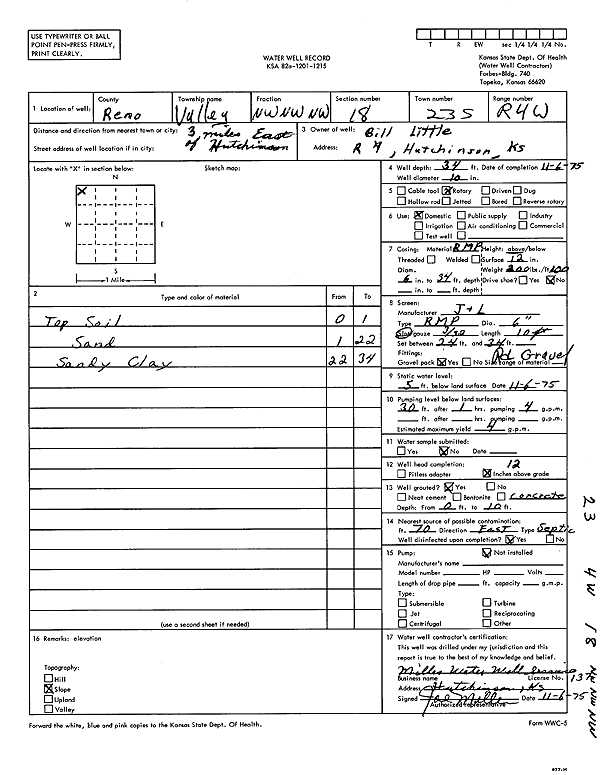 USE TYPEWRITER OR BALL
POINT PEN-PRESS FIRMLY,
PRINT CLEARLY.
WATER WELL RECORD
KSA 82a-1201-1215
T R EW sec 1/4 1/4 1/4 No.
Kansas State Dept. Of Health
(Water Well Contractors)
Forbes-Bldg. 740
Topeka, Kansas 66620
1 Location of well: County Reno Township name Valley Fraction NW NW NW Section number 18 Town number 23S Range number R4W
Distance and direction from nearest town or city: 3 miles East
of Hutchinson
Street address of well location if in city:
3 Owner of well: Bill Little
Address: R 4, Hutchinson, Ks
Locate with "X" in section below: Sketch map:
N
X
W E
S
1 Mile
4 Well depth: 34 ft. Date of completion 11-6-75
Well diameter 10 in.
5 Cable tool X Rotary Driven Dug
Hollow rod Jetted Bored Reverse rotary
6 Use: X Domestic Public supply Industry
Irrigation Air conditioning Commercial
Test well
7 Casing: Material RMP Height: above/below
Threaded Welded Surface 12 in.
Diam. Weight 200 lbs./ft.
6 in. to 34 ft. depth Drive shoe? Yes X No
in. to ft. depth
2 Type and color of material From To
Top Soil 0 1
Sand 1 22
Sandy Clay 22 34
(use a second sheet if needed)
8 Screen:
Manufacturer J+L
Type RMP Dia. 6"
Slot gauze Length 10 ft
Set between 24 ft. and 34 ft.
Fittings:
Gravel pack X Yes No Size range of material Rd Gravel
9 Static water level:
5 ft. below land surface Date 11-6-75
10 Pumping level below land surfaces:
30 ft. after 1 hrs. pumping 4 g.p.m.
ft. after hrs. pumping g.p.m.
Estimated maximum yield 4 g.p.m.
11 Water sample submitted:
Yes X No Date
12 Well head completion: 12
Pitless adapter X Inches above grade
13 Well grouted? X Yes No
Neat cement Bentonite Concrete
Depth: From 0 ft. to 10 ft.
14 Nearest source of possible contamination:
ft. 70 Direction East Type Septic
Well disinfected upon completion? X Yes No
15 Pump: X Not installed
Manufacturer's name
Model number HP Volts
Length of drop pipe ft. capacity g.m.p.
Type:
Submersible Turbine
Jet Reciprocating
Centrifugal Other
16 Remarks: elevation
Topography:
Hill
X Slope
Upland
Valley
17 Water well contractor's certification:
This well was drilled under my jurisdiction and this
report is true to the best of my knowledge and belief.
Miller Water Well Service
Business name License No. 137
Address Hutchinson, Ks
Signed Date 11-6-75
Authorized representative
Forward the white, blue and pink copies to the Kansas State Dept. Of Health.
Form WWC-5
23 4W 18 NW NW NW